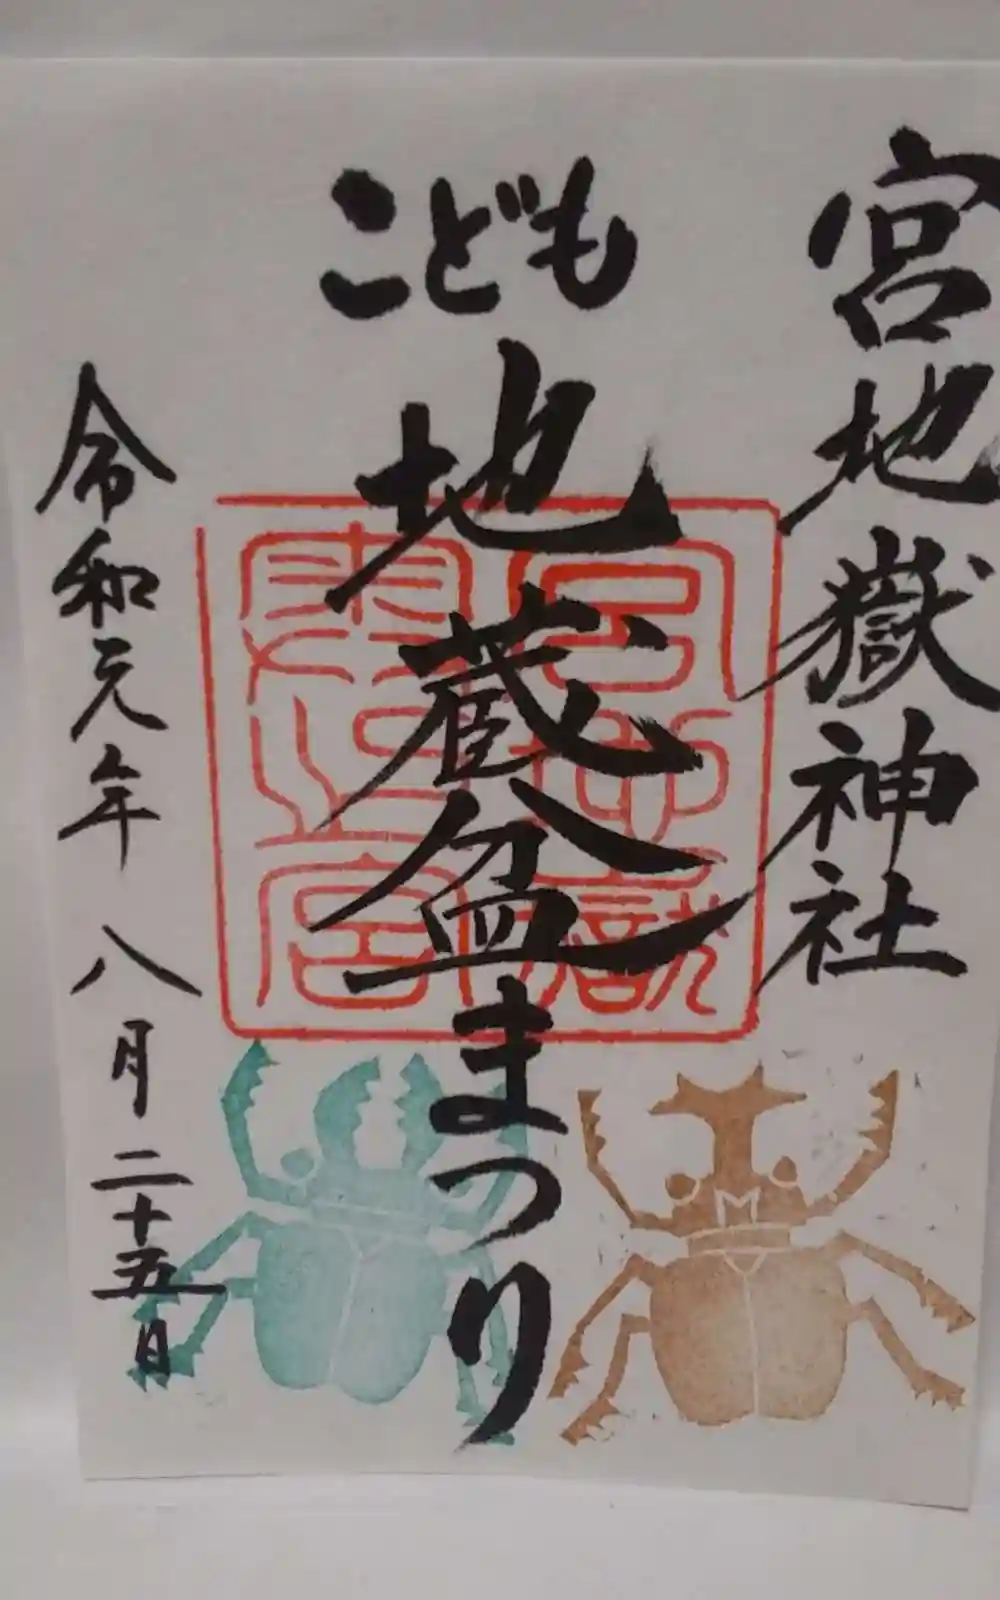 宮地嶽神社
こども
地蔵盆まつり
令和元年八月二十五日